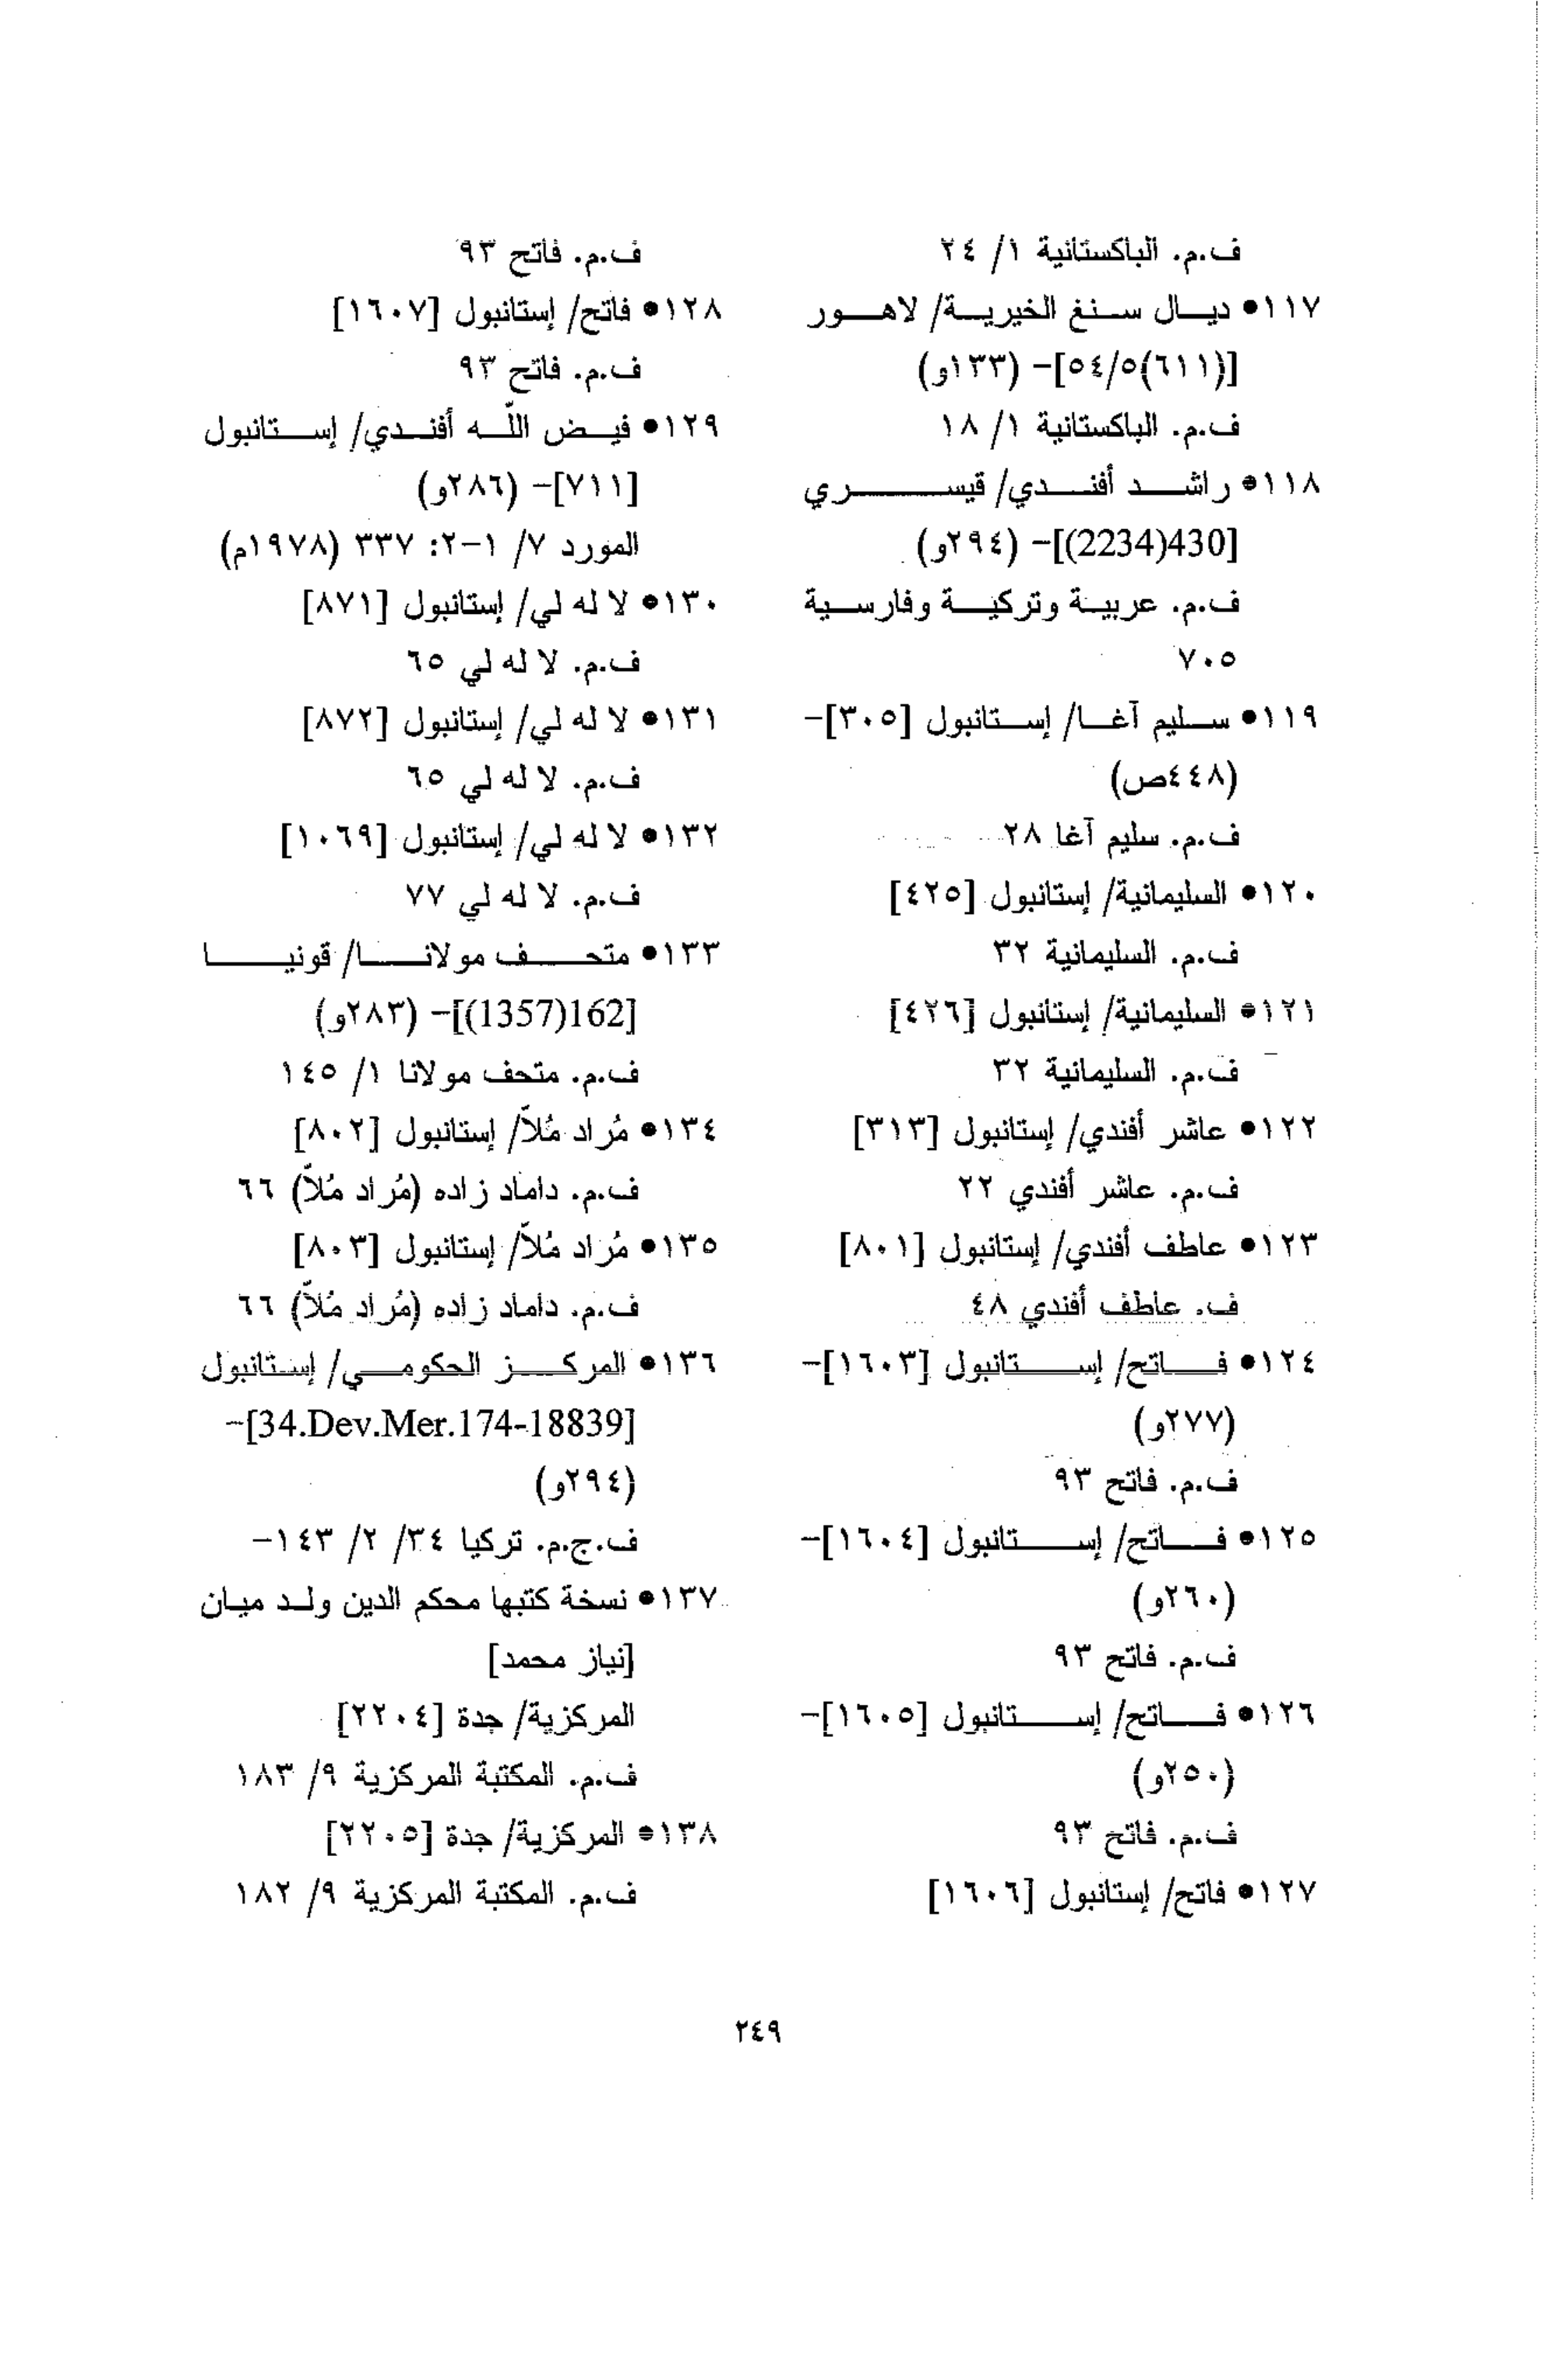 ف.م. الباكستانية ١/ ٢٤
١١٧● ديال سنغ الخيرية/ لاهور
[(٦١١)٥٤/٥]- (١٣٣و)
ف.م. الباكستانية ١/ ١٨
١١٨● راشد أفندي/ قيسري
[430(2234)]- (٢٩٤و)
ف.م. عربية وتركية وفارسية
٧٠٥
١١٩● سليم آغا/ إستانبول [٣٠٥]-
(٤٤٨ص)
ف.م. سليم آغا ٢٨
١٢٠● السليمانية/ إستانبول [٤٢٥]
ف.م. السليمانية ٣٢
١٢١● السليمانية/ إستانبول [٤٢٦]
ف.م. السليمانية ٣٢
١٢٢● عاشر أفندي/ إستانبول [٣١٣]
ف.م. عاشر أفندي ٢٢
١٢٣● عاطف أفندي/ إستانبول [٨٠١]
ف. عاطف أفندي ٤٨
١٢٤● فاتح/ إستانبول [١٦٠٣]-
(٢٧٧و)
ف.م. فاتح ٩٣
١٢٥● فاتح/ إستانبول [١٦٠٤]-
(٢٦٠و)
ف.م. فاتح ٩٣
١٢٦● فاتح/ إستانبول [١٦٠٥]-
(٢٥٠و)
ف.م. فاتح ٩٣
١٢٧● فاتح/ إستانبول [١٦٠٦]
ف.م. فاتح ٩٣
١٢٨● فاتح/ إستانبول [١٦٠٧]
ف.م. فاتح ٩٣
١٢٩● فيض اللّه أفندي/ إستانبول
[٧١١]- (٢٨٦و)
المورد ٧/ ١-٢: ٣٣٧ (١٩٧٨م)
١٣٠● لا له لي/ إستانبول [٨٧١]
ف.م. لا له لي ٦٥
١٣١● لا له لي/ إستانبول [٨٧٢]
ف.م. لا له لي ٦٥
١٣٢● لا له لي/ إستانبول [١٠٦٩]
ف.م. لا له لي ٧٧
١٣٣● متحف مولانا/ قونيا
[162(1357)]- (٢٨٣و)
ف.م. متحف مولانا ١/ ١٤٥
١٣٤● مُراد مُلاّ/ إستانبول [٨٠٢]
ف.م. داماد زاده (مُراد مُلاّ) ٦٦
١٣٥● مُراد مُلاّ/ إستانبول [٨٠٣]
ف.م. داماد زاده (مُراد مُلاّ) ٦٦
١٣٦● المركز الحكومي/ إستانبول
[34.Dev.Mer.174-18839]-
(٢٩٤و)
ف.ج.م. تركيا ٣٤/ ٢/ ١٤٣-
١٣٧● نسخة كتبها محكم الدين ولد ميان
[نياز محمد]
المركزية/ جدة [٢٢٠٤]
ف.م. المكتبة المركزية ٩/ ١٨٣
١٣٨● المركزية/ جدة [٢٢٠٥]
ف.م. المكتبة المركزية ٩/ ١٨٢
٢٤٩